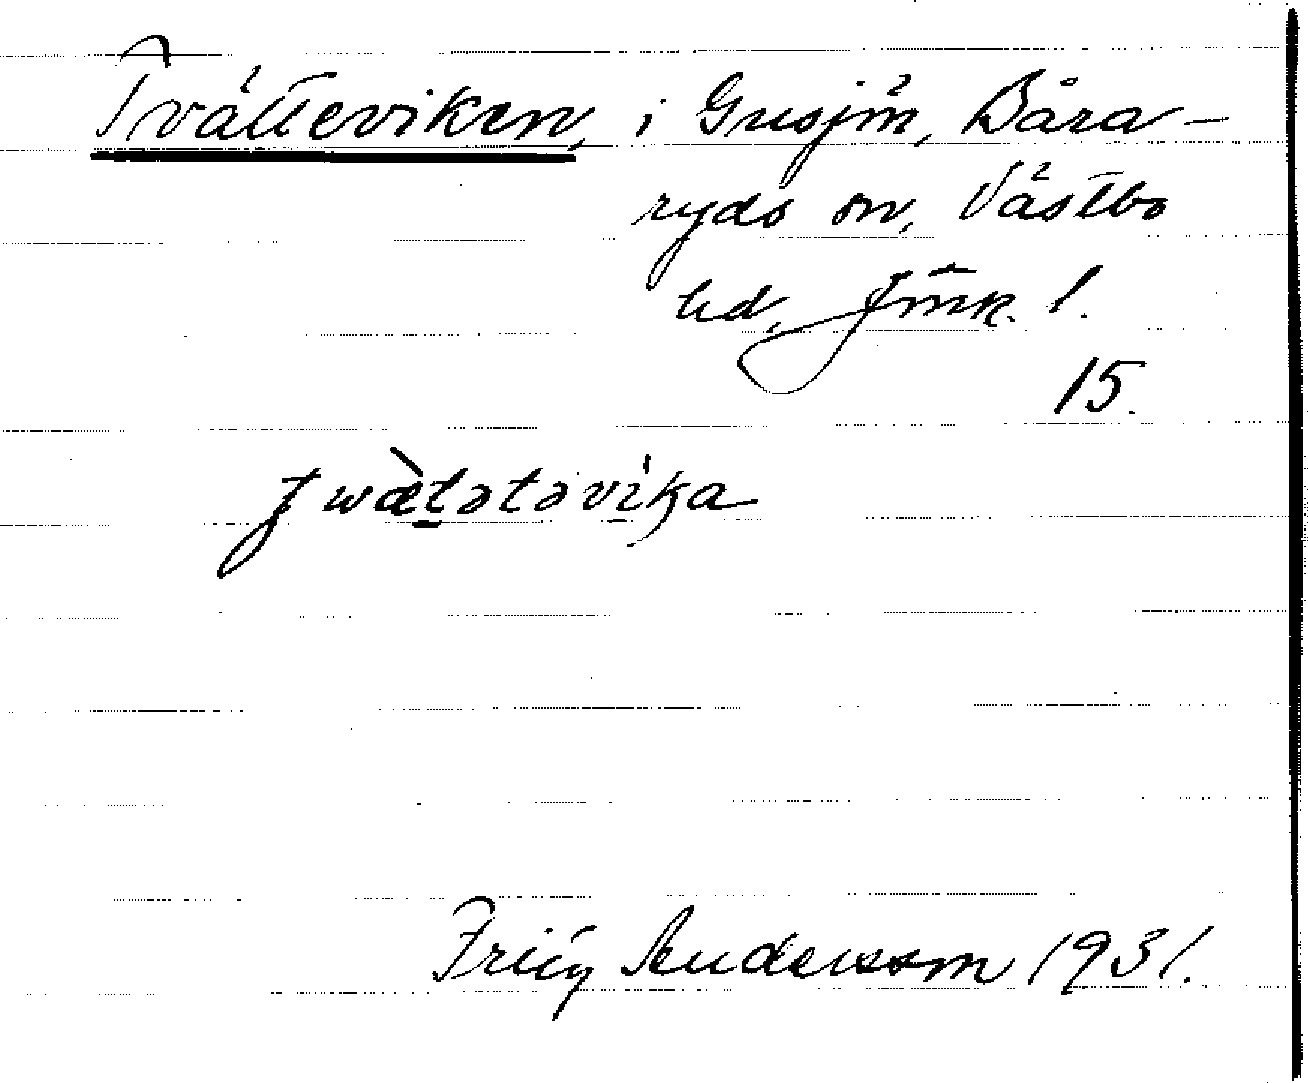 Tvätteviken, i Gusjön, Båra-
ryds sn, Västbo
hd, Jönk. l.
15.
Fritz Andersson 1931.